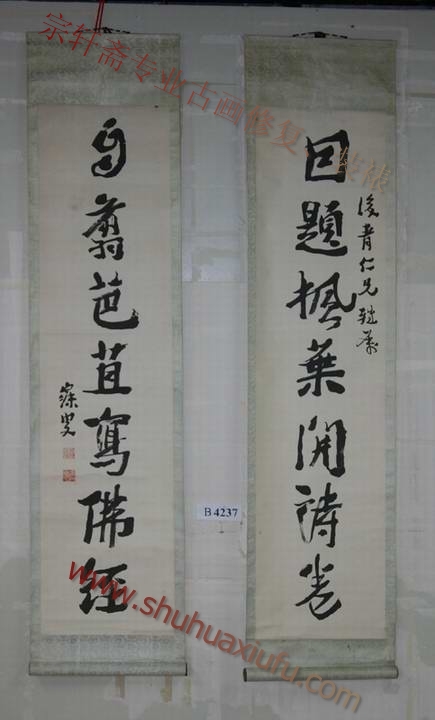 宗轩斋专业古画修复、装裱
因題楓葉開詩卷
後青仁兄
自翦芭苴寫佛經
寐叟
B 4237
www.shuhuaxiufu.com